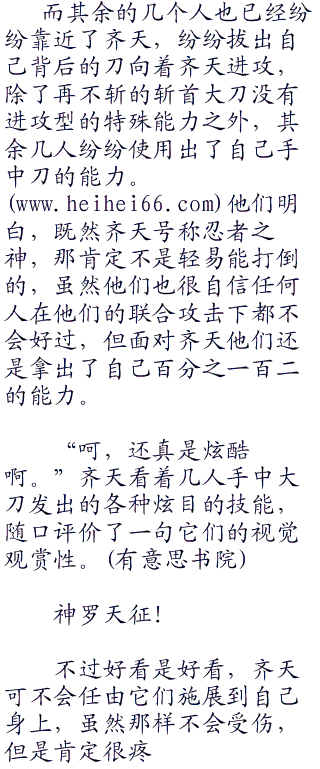 而其余的几个人也已经纷
纷靠近了齐天，纷纷拔出自
己背后的刀向着齐天进攻，
除了再不斩的斩首大刀没有
进攻型的特殊能力之外，其
余几人纷纷使用出了自己手
中刀的能力。
(www.heihei66.com)他们明
白，既然齐天号称忍者之
神，那肯定不是轻易能打倒
的，虽然他们也很自信任何
人在他们的联合攻击下都不
会好过，但面对齐天他们还
是拿出了自己百分之一百二
的能力。
“呵，还真是炫酷
啊。”齐天看着几人手中大
刀发出的各种炫目的技能，
随口评价了一句它们的视觉
观赏性。(有意思书院)
神罗天征！
不过好看是好看，齐天
可不会任由它们施展到自己
身上，虽然那样不会受伤，
但是肯定很疼